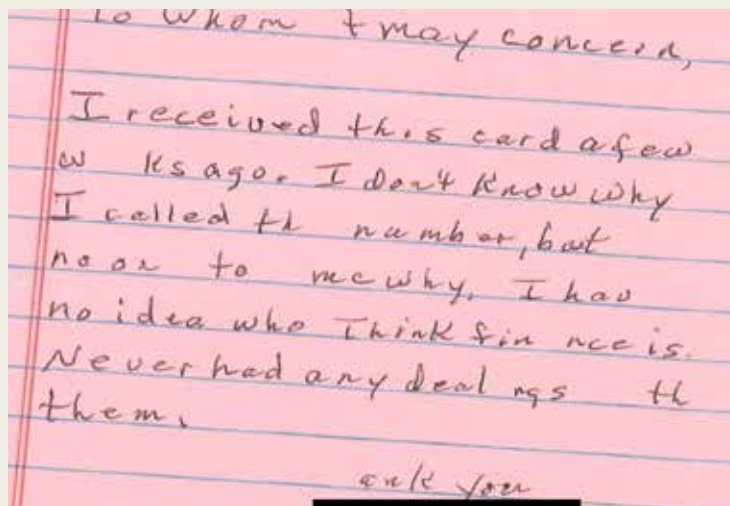 To whom t may concern,
I received this card a few
w ks ago. I don't know why
I called th number, but
no on to me why. I hav
no idea who Think fin nce is.
Never had any deal ngs th
them.
ank you